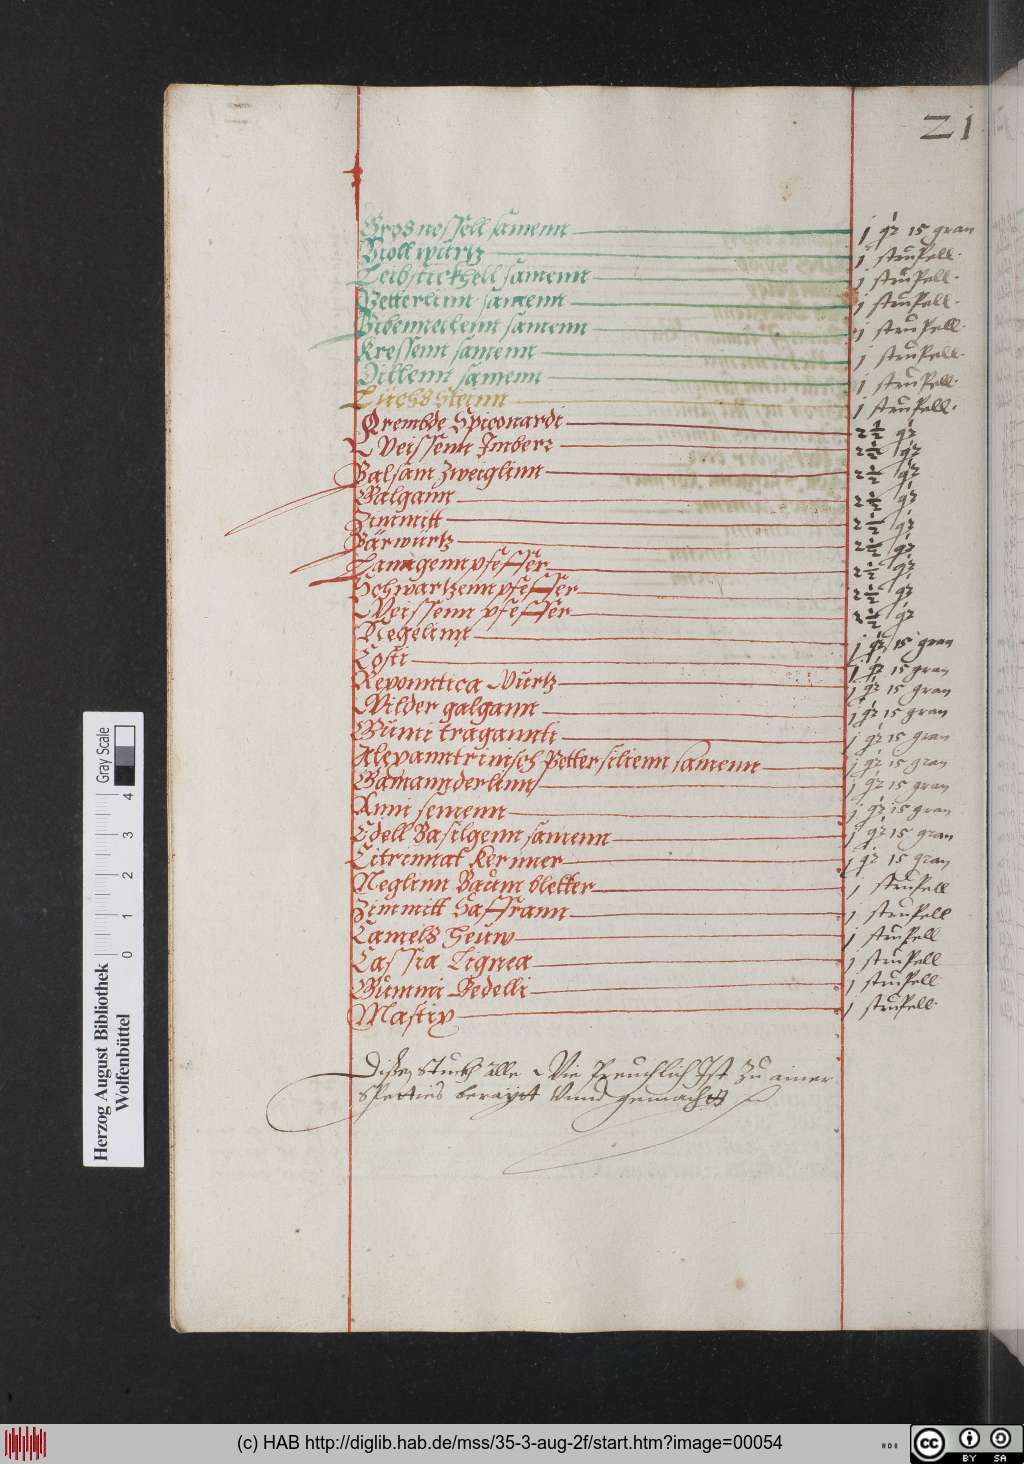 21
Grosnessell samenn j qr 15 gran
Noll wurtz j strupell.
Leibstickhell samenn j strupell.
Petterlinn samenn j strupell.
Bibennellenn samenn j strupell.
Kressenn samenn j strupell.
Dillenn samenn j strupell.
Lüchsstainn j strupell.
Frembde Spiconardi 2 1/2 qr
Weissenn Imberr 2 1/2 qr
Balsam zweiglinn 2 1/2 qr
Galgann 2 1/2 qr
Zimmitt 2 1/2 qr
Bärwürtz 2 1/2 qr
Lanngenn pfeffer 2 1/2 qr
Schwartzenn pfeffer 2 1/2 qr
Weissenn pfeffer 2 1/2 qr
Negelinn j qr 15 gran
Costi j qr 15 gran
Reponntica Wurtz j qr 15 gran
Wilder galgann j qr 15 gran
Gumi tragannti j qr 15 gran
Alexanntrinisch Pettersilienn samenn j qr 15 gran
Gamannderlinn j qr 15 gran
Anni semenn j qr 15 gran
Edell Basilgenn samenn j qr 15 gran
Citrinnat Kernner j qr 15 gran
Neglinn Baum bletter j strupell
Zimmitt Saffrann j strupell
Camels Heuw j strupell
Cassia Lignea j strupell
Gummi Bedelli j strupell
Mastix j strupell
Disse Stuckh alle Wie Breuchlich Ist zu ainer
Species berayit Vnnd gemacht
Herzog August Bibliothek
Wolfenbüttel
0 1 2 3 4
Gray Scale
(c) HAB http://diglib.hab.de/mss/35-3-aug-2f/start.htm?image=00054
cc BY SA